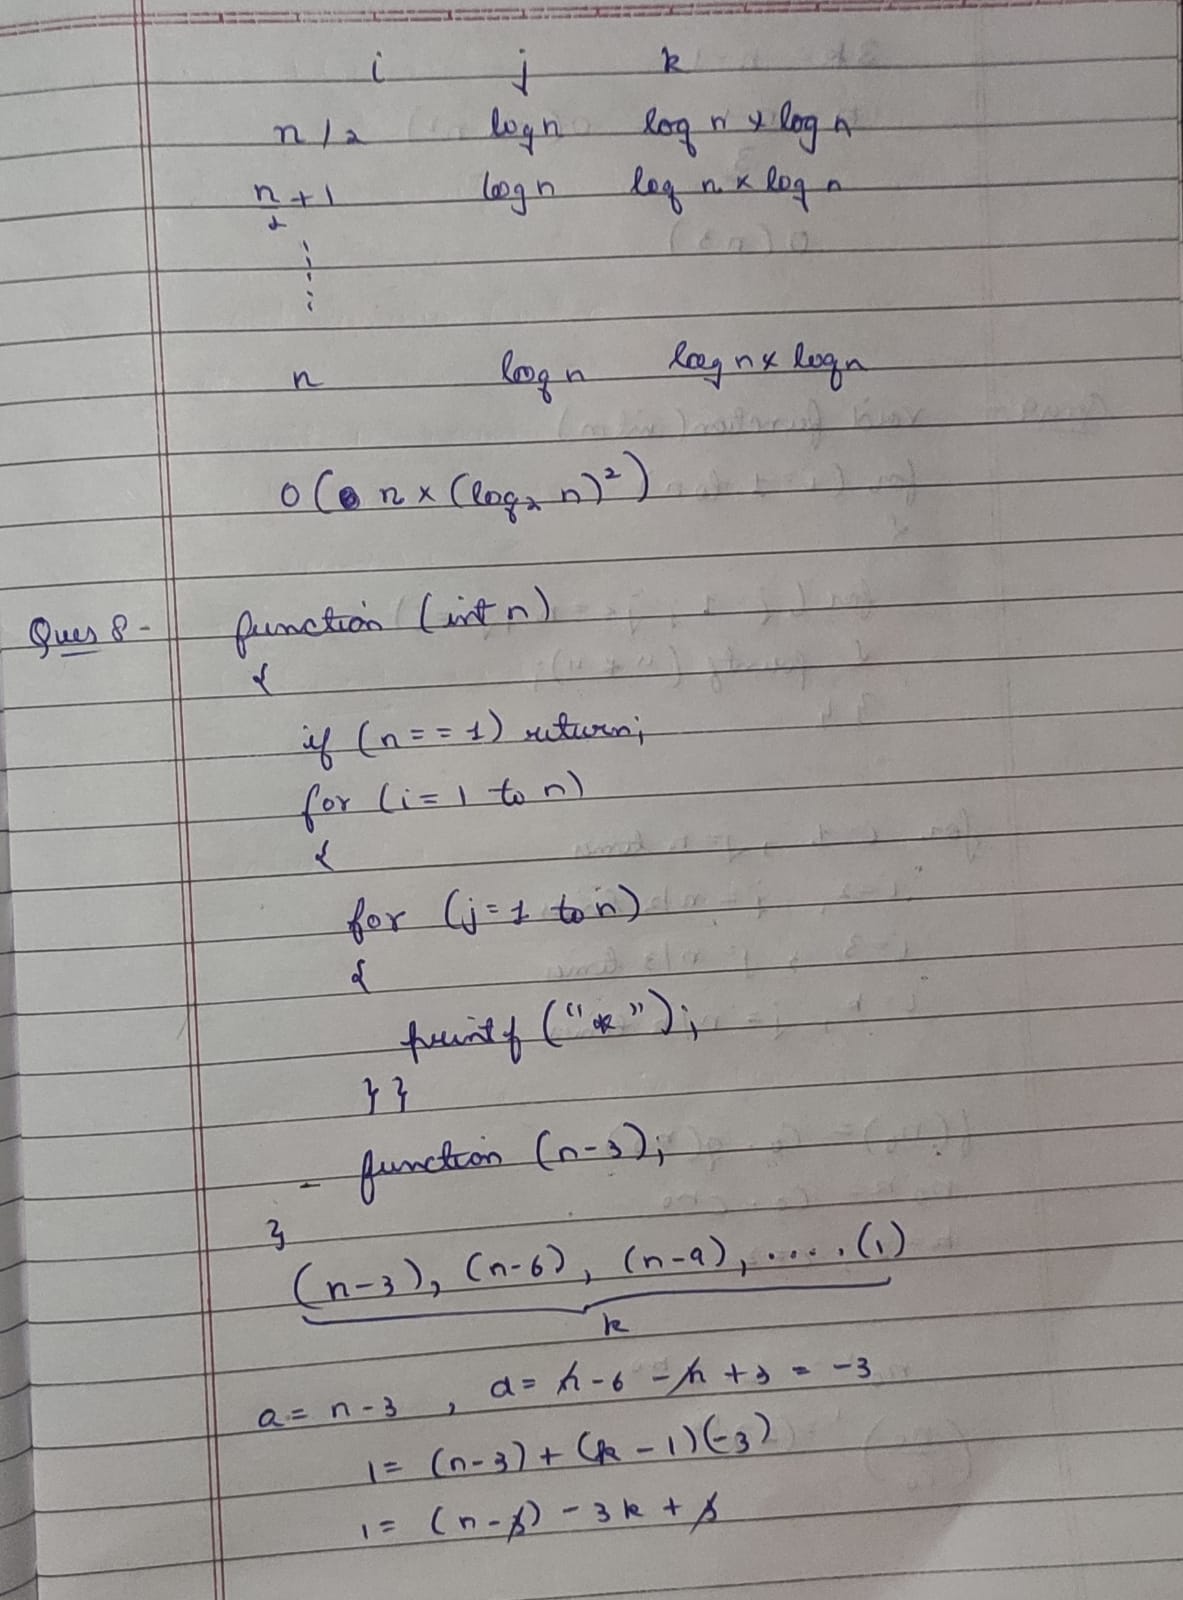 i j k
n/2 log n log n × log n
n/2 + 1 log n log n × log n
n log n log n × log n
O( n × (log₂ n)²)
Ques 8- function (int n)
{
if (n == 1) return;
for (i = 1 to n)
{
for (j = 1 to n)
{
printf ("*");
}}
- function (n-3);
}
(n-3), (n-6), (n-9), .... (1)
k
a = n-3 , d = n-6 - n + 3 = -3
1 = (n-3) + (k-1)(-3)
1 = (n-3) - 3k + 3